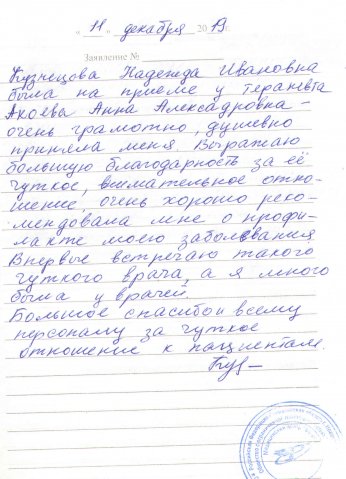 « 11 » декабря 2019 г.
Заявление №
Кузнецова Надежда Ивановна
была на приеме у терапевта
Акоевы Анна Александровна –
очень грамотно, душевно
приняла меня. Выражаю
большую благодарность за её
чуткое, внимательное отно-
шение, очень хорошо реко-
мендовала мне о профи-
лакте моего заболевания
Впервые встречаю такого
чуткого врача, а я много
была у врачей.
Большое спасибо и всему
персоналу за чуткое
отношение к пациентам.